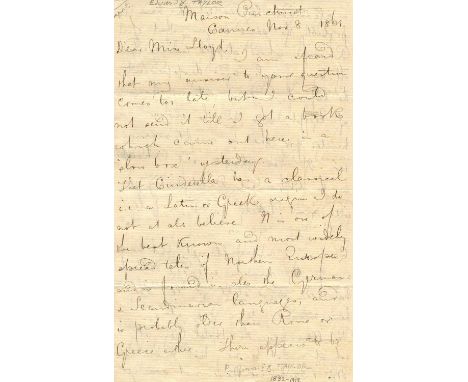 EDWARD B. TAYLOR
Maison
Cannes Nov. 8 186
Dear Miss Lloyd
I am afraid
that my answer to your question
comes too late, but I could
not send it till I got a book
which came out here in a
slow box yesterday.
That Cinderella has a classical
i.e. a Latin or Greek origin I do
not at all believe. It is one of
the best known and most widely
spread tales of Northern Europe
and is found in the German
& Scandinavian languages, and
is probably older than Rome or
Greece either. There appears to be
TAYLOR
1832-